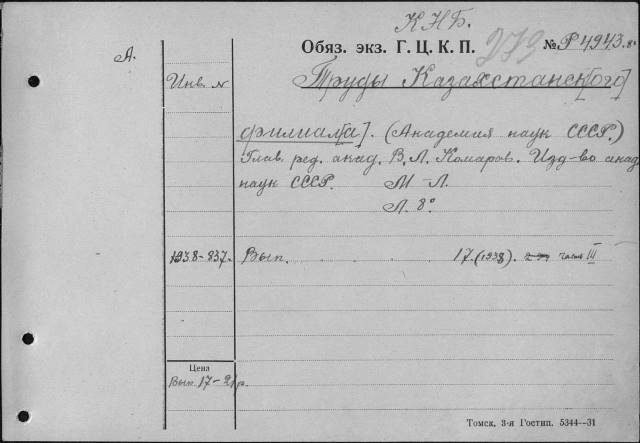 К Н Б.
Обяз. экз. Г. Ц. К. П.
279
№ Р 4943. 8°
А.
Инв. N
Труды Казахстанск[ого]
филиал[а]. (Академия наук СССР.)
Глав. ред. акад. В. Л. Комаров. Изд-во акад.
наук СССР. М-Л.
Л. 8°
1938-837. Вып. 17. (1938). часть III
Цена
Вып. 17 - 21 р.
Томск, 3-я Гостип. 5344—31